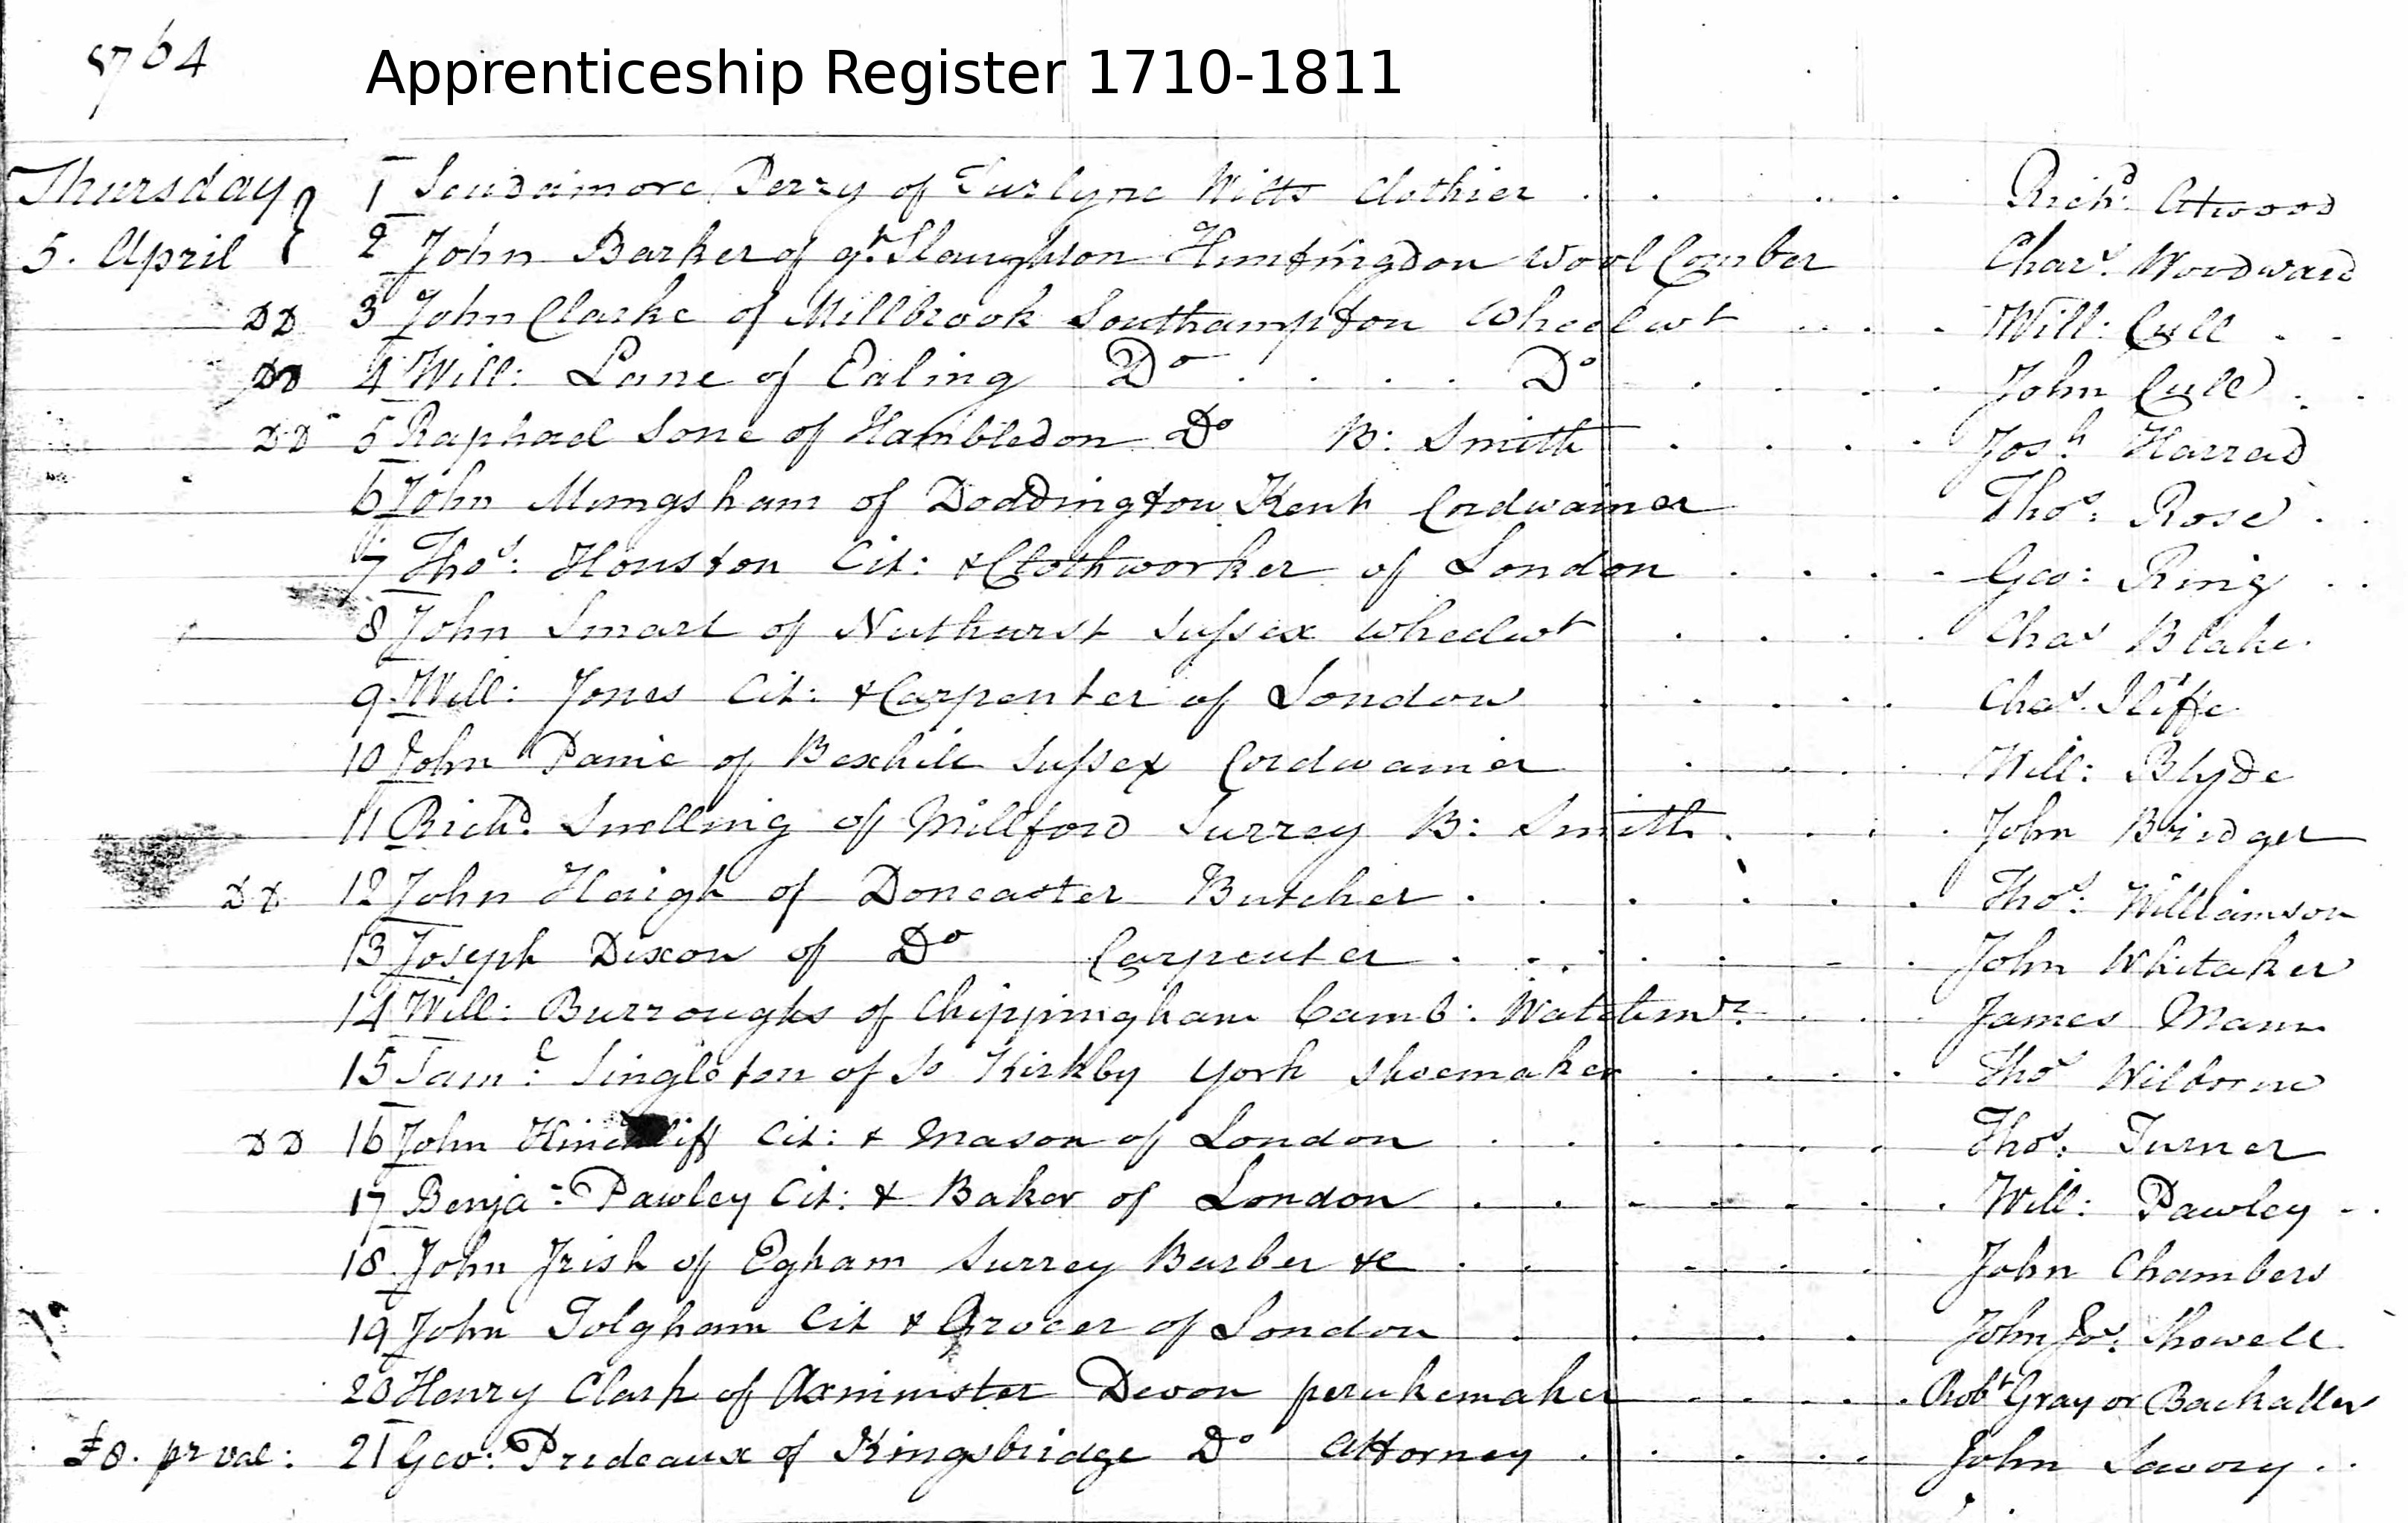 1764
Apprenticeship Register 1710-1811
Thursday 1 Scudamore Perry of Turlyne Wilts Clothier Richd. Atwood
5. April 2 John Barker of gt. Slaughton Huntingdon Wool Comber Chars. Woodward
DD 3 John Clarke of Millbrook Southampton Wheelwt Will: Cull
DD 4 Will: Lane of Ealing Do Do John Cull
DD 5 Raphael Sone of Hambledon Do B: Smith Josh Harrad
6 John Mungsham of Doddington Kent Cordwainer Thos: Rose
7 Thos: Houston Cit: & Clothworker of London Geo: Ring
8 John Smart of Nuthurst Sussex Wheelwt Chas Blake
9 Will: Jones Cit: & Carpenter of London Chas. Iliffe
10 John Panie of Bexhill Sussex Cordwainer Will: Blyde
11 Richd. Snelling of Millford Surrey B: Smith John Bridger
DD 12 John Haigh of Doncaster Butcher Thos: Williamson
13 Joseph Dixon of Do Carpenter John Whitaker
14 Will: Burroughs of Chippingham Camb: Watchmr. James Mann
15 Saml: Singleton of So Kirkby York Shoemaker Thos Wilborne
DD 16 John Hinchliff Cit: & Mason of London Thos. Turner
17 Benja: Pawley Cit: & Baker of London Will: Pawley
18 John Irish of Egham Surrey Barber &c John Chambers
19 John Tolgham Cit & Grocer of London John Jos. Showell
20 Henry Clark of Axminster Devon perukemaker Robt Gray or Backaller
£8. pr val: 21 Geo: Prideaux of Kingsbridge Do Attorney John Savory